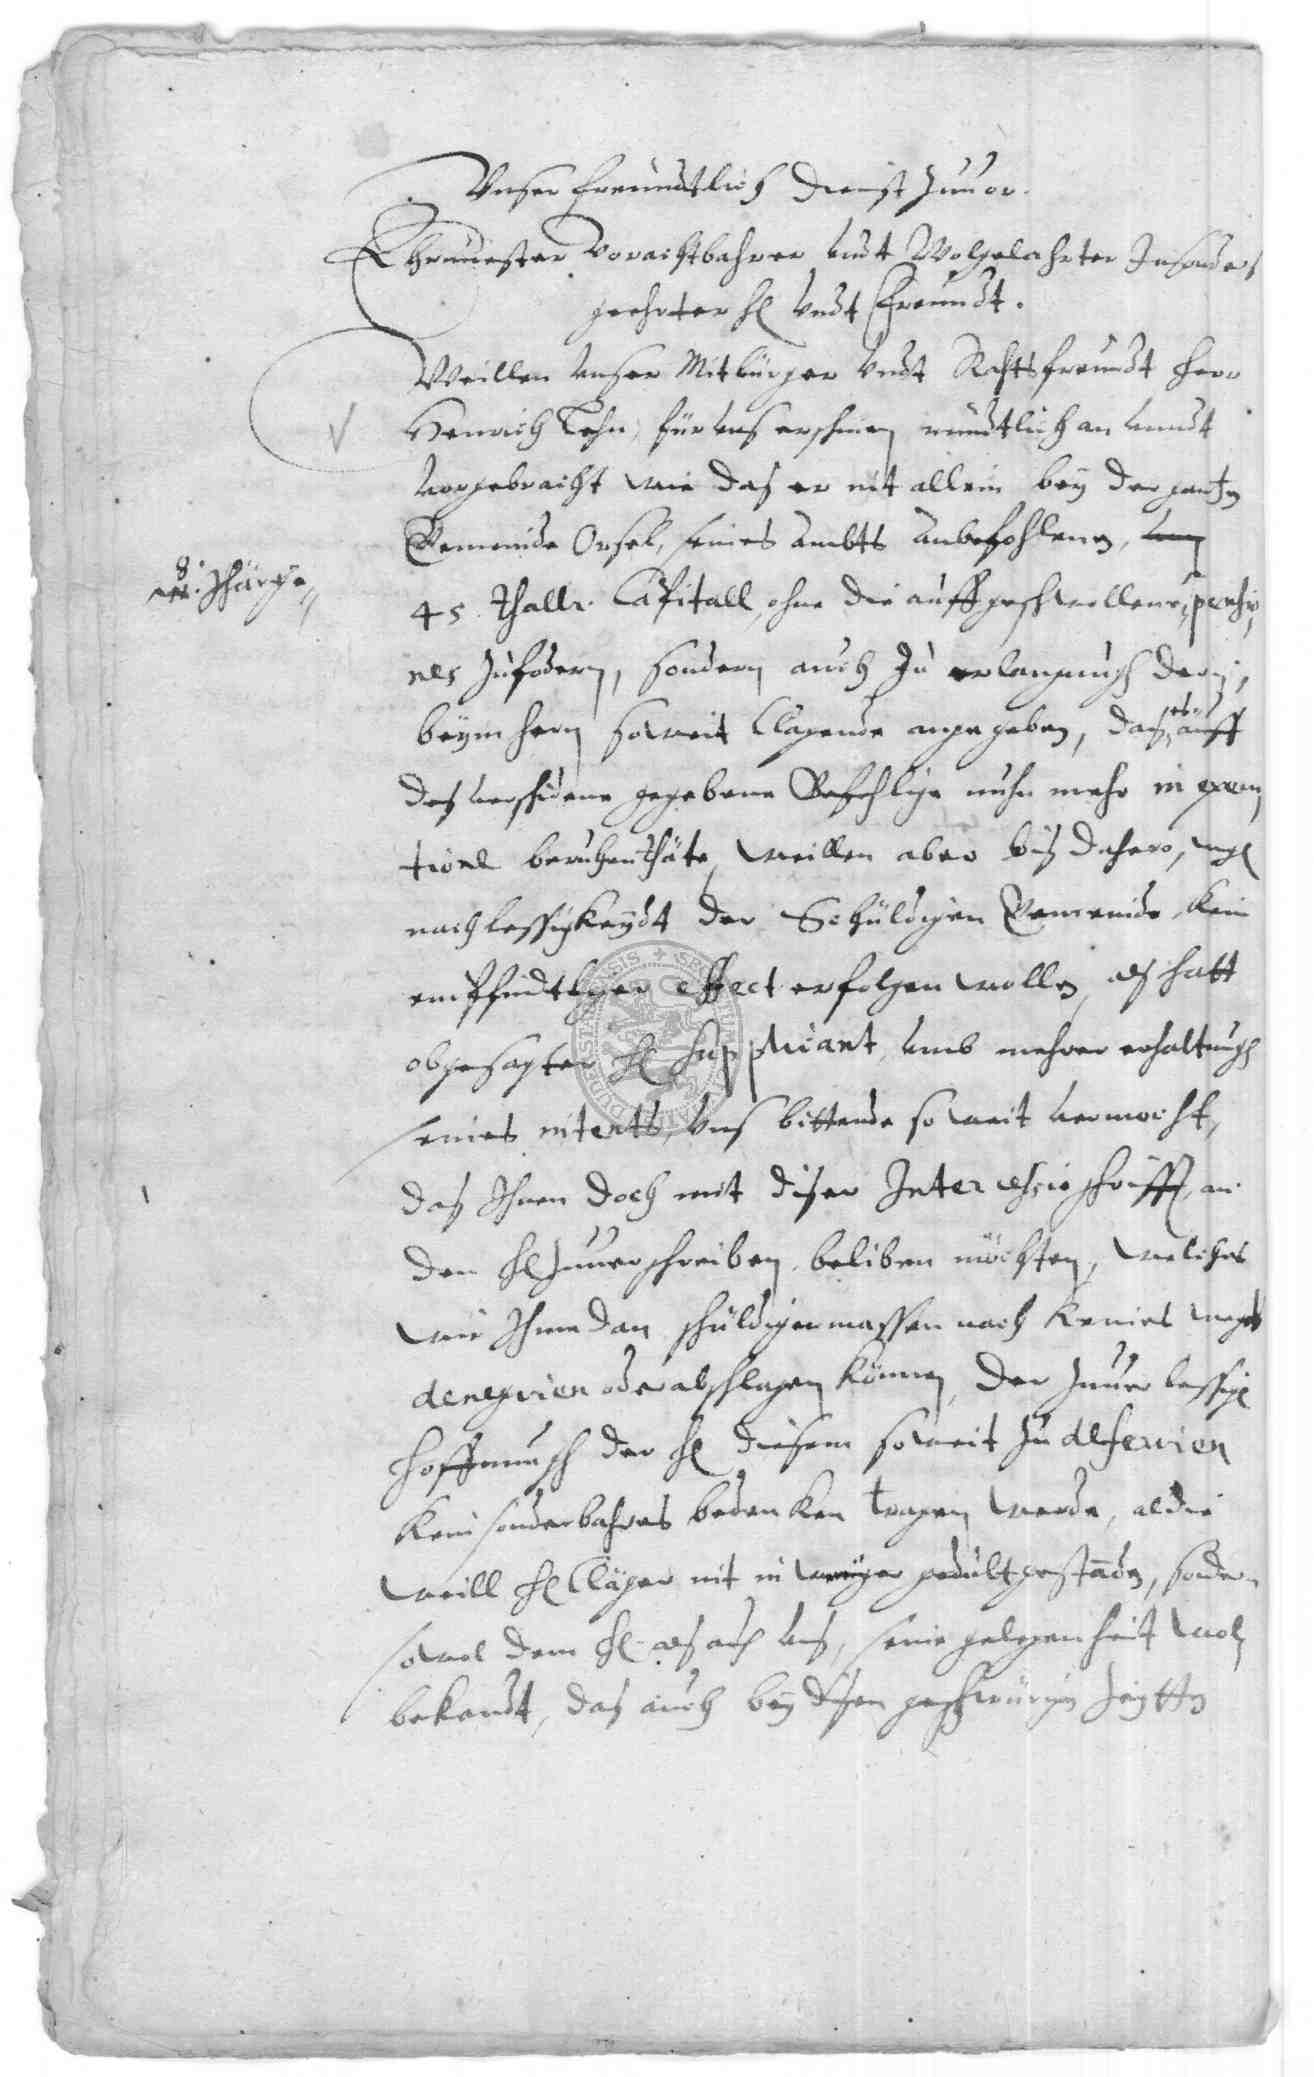 Unser freundtlich dienst Zuuor.
Ehrnuester Vorachtbahrer undt Wolgelahrter Insonders
geehrter H Undt Freundt.
Weillen unser Mitbürger Undt Rahtsfreundt Herr
Henrich Lehn, für uns erschinen mündtlich an unndt
vorgebracht wie das er nit allein bey der gantzen
Gemeinde Orsel, seines Ambts anbefohlenen,
8. Jhärige
45 Thaller Capitall, ohne die auffgeschwollene, pensio,
nes zufodern, sondern auch zu erlangungh deren,
beym hern soweit Clagende angegeben, das es uff
das verschidene gegebene Befehlige nuhn mehr in execu,
tione beruhen thäte, weillen aber bis dahero, wegen
nachlessigkeydt der Schüldigen Gemeinde kein
empfindtlyger effect erfolgen wollen, als hatt
obgesagter H suppliant, umb mehrer erhaltungh
seines intents, uns bittende so weit vermocht,
das Ihnen doch mit diser Intercessio schrifften, an
den H zuuerschreiben beliben möchten, welches
wir Ihme dan schüldigermassen nach keines weges
denegrieren oder abschlagen können, der zuuerlessigen
Hoffnungh der H diesem soweit zu deferiren
kein sonderbahres bedencken tragen werde, aldie
weill H Cläger nit in weniger gedult gestanden, sondern
sowol dem H als auch uns, seine gelegenheit wol
bekandt, das auch bey disen geschwürigen Zeytten
SIGILLUM